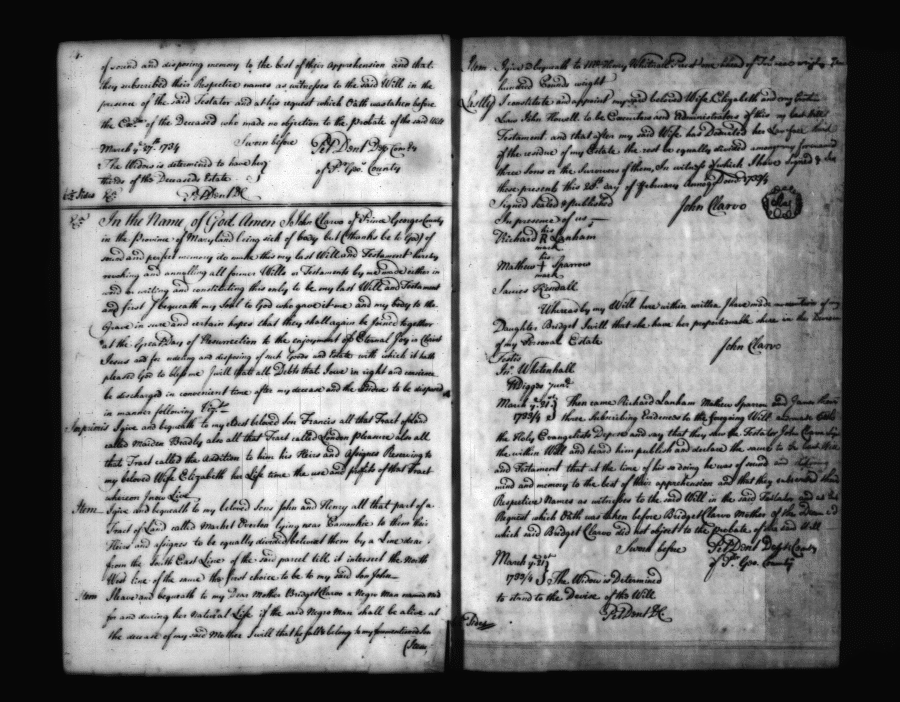 of sound and disposing memory to the best of their apprehension and that
they subscribed their Respective names as witnesses to the said Will in the
presence of the said Testator and at his request which Oath was taken before
the of the Deceased who made no objection to the probate of the said Will
March ye 27th 1734 Sworn before Pet Dent Dep Comry
The Widow is determined to have her of Pr Geo. County
thirds of the Deceaseds Estate
Sides Pet Dent
In the Name of God Amen I John Clarvo of Prince Georges County
in the Province of Maryland being sick of body but (thanks be to God) of
sound and perfect memory do make this my last Will and Testament hereby
revoking and annulling all former Wills or Testaments by me made either in
word or writing and constituting this only to be my last Will and Testament
and first I bequeath my Soul to God who gave it me and my body to the
Grave in sure and certain hopes that they shall again be joined together
at the Great Day of Resurrection to the enjoyment of Eternal Joy in Christ
Jesus and for ordering and disposing of such Goods and Estate with which it hath
pleased God to bless me I will that all Debts that I owe in right and conscience
be discharged in convenient time after my decease and the to be disposed
in manner following Vizt
Imprimis I give and bequeath to my beloved Son Francis all that Tract of Land
called Maiden Bradly also all that Tract called London pleasure also all
that Tract called the Addition to him his Heirs and Assignes Reserving to
my beloved Wife Elizabeth her Life time the use and profits of that Tract
whereon I now Live
Item I give and bequeath to my beloved Sons John and Henry all that part of a
Tract of Land called Market Overton lying near to them their
Heirs and assignes to be equally divided between them by a Line
from the South East Line of the said parcel till it intersect the North
West line of the same the first choice to be to my said Son John
Item I leave and bequeath to my Dear Mother Bridget Clarvo a Negro Man named
for and during her Natural Life if the said Negro Man shall be alive at
the decease of my said Mother I will that he fall & belong to my Son
(Item,
Item I give & bequeath to Mr Henry
hundred pounds weight
Lastly I constitute and appoint my said beloved Wife Elizabeth and my
John Howell to be Executors and Administrators of this my last Will
Testament and that after my said Wife has Deducted her Lawfull third
of the residue of my Estate the rest be equally divided among my
three Sons or the Survivors of them, In witness of which I have Signed &
these presents this day of February Annoq Domi 1733/4
Signed Sealed & published John Clarvo Seal
In presence of us
his
Richard R Lanham
mark
his
Mathew + Sparrow
mark
James Kendall
Whereas by my Will here within written I have made no mention of my
Daughter Bridget I will that she have her proportionable share in the
of my Personal Estate John Clarvo
Testis
Jno. Whitenhall
Digges Junr
March ye 21st Then came Richard Lanham Mathew Sparrow and James
1733/4 three subscribing Evidences to the foregoing Will
the Holy Evangelists Depose and say that they saw the Testator John Clarvo
the within Will and heard him publish and declare the same to be
and Testament that at the time of his so doing he was of sound and
mind and memory to the best of their apprehension and that they subscribed their
Respective Names as witnesses to the said Will in the said Testator and at his
Request which Oath was taken before Bridget Clarvo Mother of the Deceased
which said Bridget Clarvo did not object to the probate of the said Will
Sworn before Pet Dent Dept Comry
March ye 21st of Pr Geo. County
1733/4 The Widow is Determined
to stand to the Devise of the Will
Pet Dent
Sides